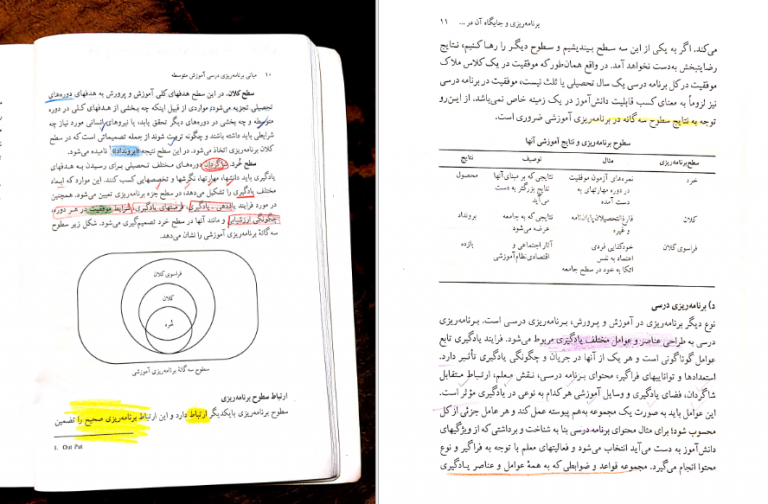 ۱۰ مبانی برنامه‌ریزی درسی آموزش متوسطه
سطح کلان. در این سطح هدفهای کلی آموزش و پرورش به هدفهای دوره‌های
تحصیلی تجزیه می‌شود؛ مواردی از قبیل اینکه چه بخشی از هدفهای کلی در دوره
متوسطه و چه بخشی در دوره‌های دیگر تحقق یابد، یا نیروهای انسانی مورد نیاز چه
شرایطی باید داشته باشند و چگونه تربیت شوند از جمله تصمیماتی است که در سطح
کلان برنامه‌ریزی اتخاذ می‌شود. در این سطح نتیجه «برونداد»۱ نامیده می‌شود.
سطح خُرد. شاگردان دوره‌های مختلف تحصیلی برای رسیدن به هدفهای
یادگیری باید دانشها، مهارتها، نگرشها و تخصصهایی کسب کنند. این موارد که ابعاد
مختلف یادگیری را تشکیل می‌دهد، در سطح جزء برنامه‌ریزی تعیین می‌شود. همچنین
در مورد فرایند یاددهی ـ یادگیری، فرصتهای یادگیری، شرایط موفقیت در هر دوره،
چگونگی ارزشیابی و مانند آنها در سطح خرد تصمیم‌گیری می‌شود. شکل زیر سطوح
سه گانهٔ برنامه‌ریزی آموزشی را نشان می‌دهد.
فراسوی کلان
کلان
خُرد
سطوح سه گانهٔ برنامه‌ریزی آموزشی
ارتباط سطوح برنامه‌ریزی
سطوح برنامه‌ریزی بایکدیگر ارتباط دارد و این ارتباط برنامه‌ریزی صحیح را تضمین
1. Out Put
برنامه‌ریزی و جایگاه آن در ... ۱۱
می‌کند. اگر به یکی از این سه سطح بیندیشیم و سطوح دیگر را رها کنیم، نتایج
رضایتبخش به‌دست نخواهد آمد. در واقع همان‌طور که موفقیت در یک کلاس ملاک
موفقیت در کل برنامه درسی یک سال تحصیلی یا ثلث نیست، موفقیت در برنامه درسی
نیز لزوماً به معنای کسب قابلیت دانش‌آموز در یک زمینه خاص نمی‌باشد. از این‌رو
توجه به نتایج سطوح سه گانه در برنامه‌ریزی آموزشی ضروری است.
سطوح برنامه‌ریزی و نتایج آموزشی آنها
سطح برنامه‌ریزی مثال توصیف نتایج
خرد نمره‌های آزمون موفقیت نتایجی که بر مبنای آنها محصول
در دوره مهارتهای به نتایج بزرگتر به دست
دست آمده می‌آید
کلان فارغ‌التحصیلان پایان‌نامه نتایجی که به جامعه برونداد
و غیره عرضه می‌شود
فراسوی کلان خودکفایی فردی آثار اجتماعی و بازده
اعتماد به نفس اقتصادی نظام آموزشی
اتکا به خود در سطح جامعه
د) برنامه‌ریزی درسی
نوع دیگر برنامه‌ریزی در آموزش و پرورش، برنامه‌ریزی درسی است. برنامه‌ریزی
درسی به طراحی عناصر و عوامل مختلف یادگیری مربوط می‌شود. فرایند یادگیری تابع
عوامل گوناگونی است و هر یک از آنها در جریان و چگونگی یادگیری تأثیر دارد.
استعدادها و تواناییهای فراگیر، محتوای برنامه درسی، نقش معلم، ارتباط متقابل
شاگردان، فضای یادگیری و وسایل آموزشی هر کدام به نوعی در یادگیری مؤثر است.
این عوامل باید به صورت یک مجموعه به‌هم پیوسته عمل کند و هر عامل جزئی از کل
محسوب شود؛ برای مثال محتوای برنامه درسی بنا به شناخت و برداشتی که از ویژگیهای
دانش‌آموز به دست می‌آید انتخاب می‌شود و فعالیتهای معلم با توجه به فراگیر و نوع
محتوا انجام می‌گیرد. مجموعه قواعد و ضوابطی که به همهٔ عوامل و عناصر یادگیری